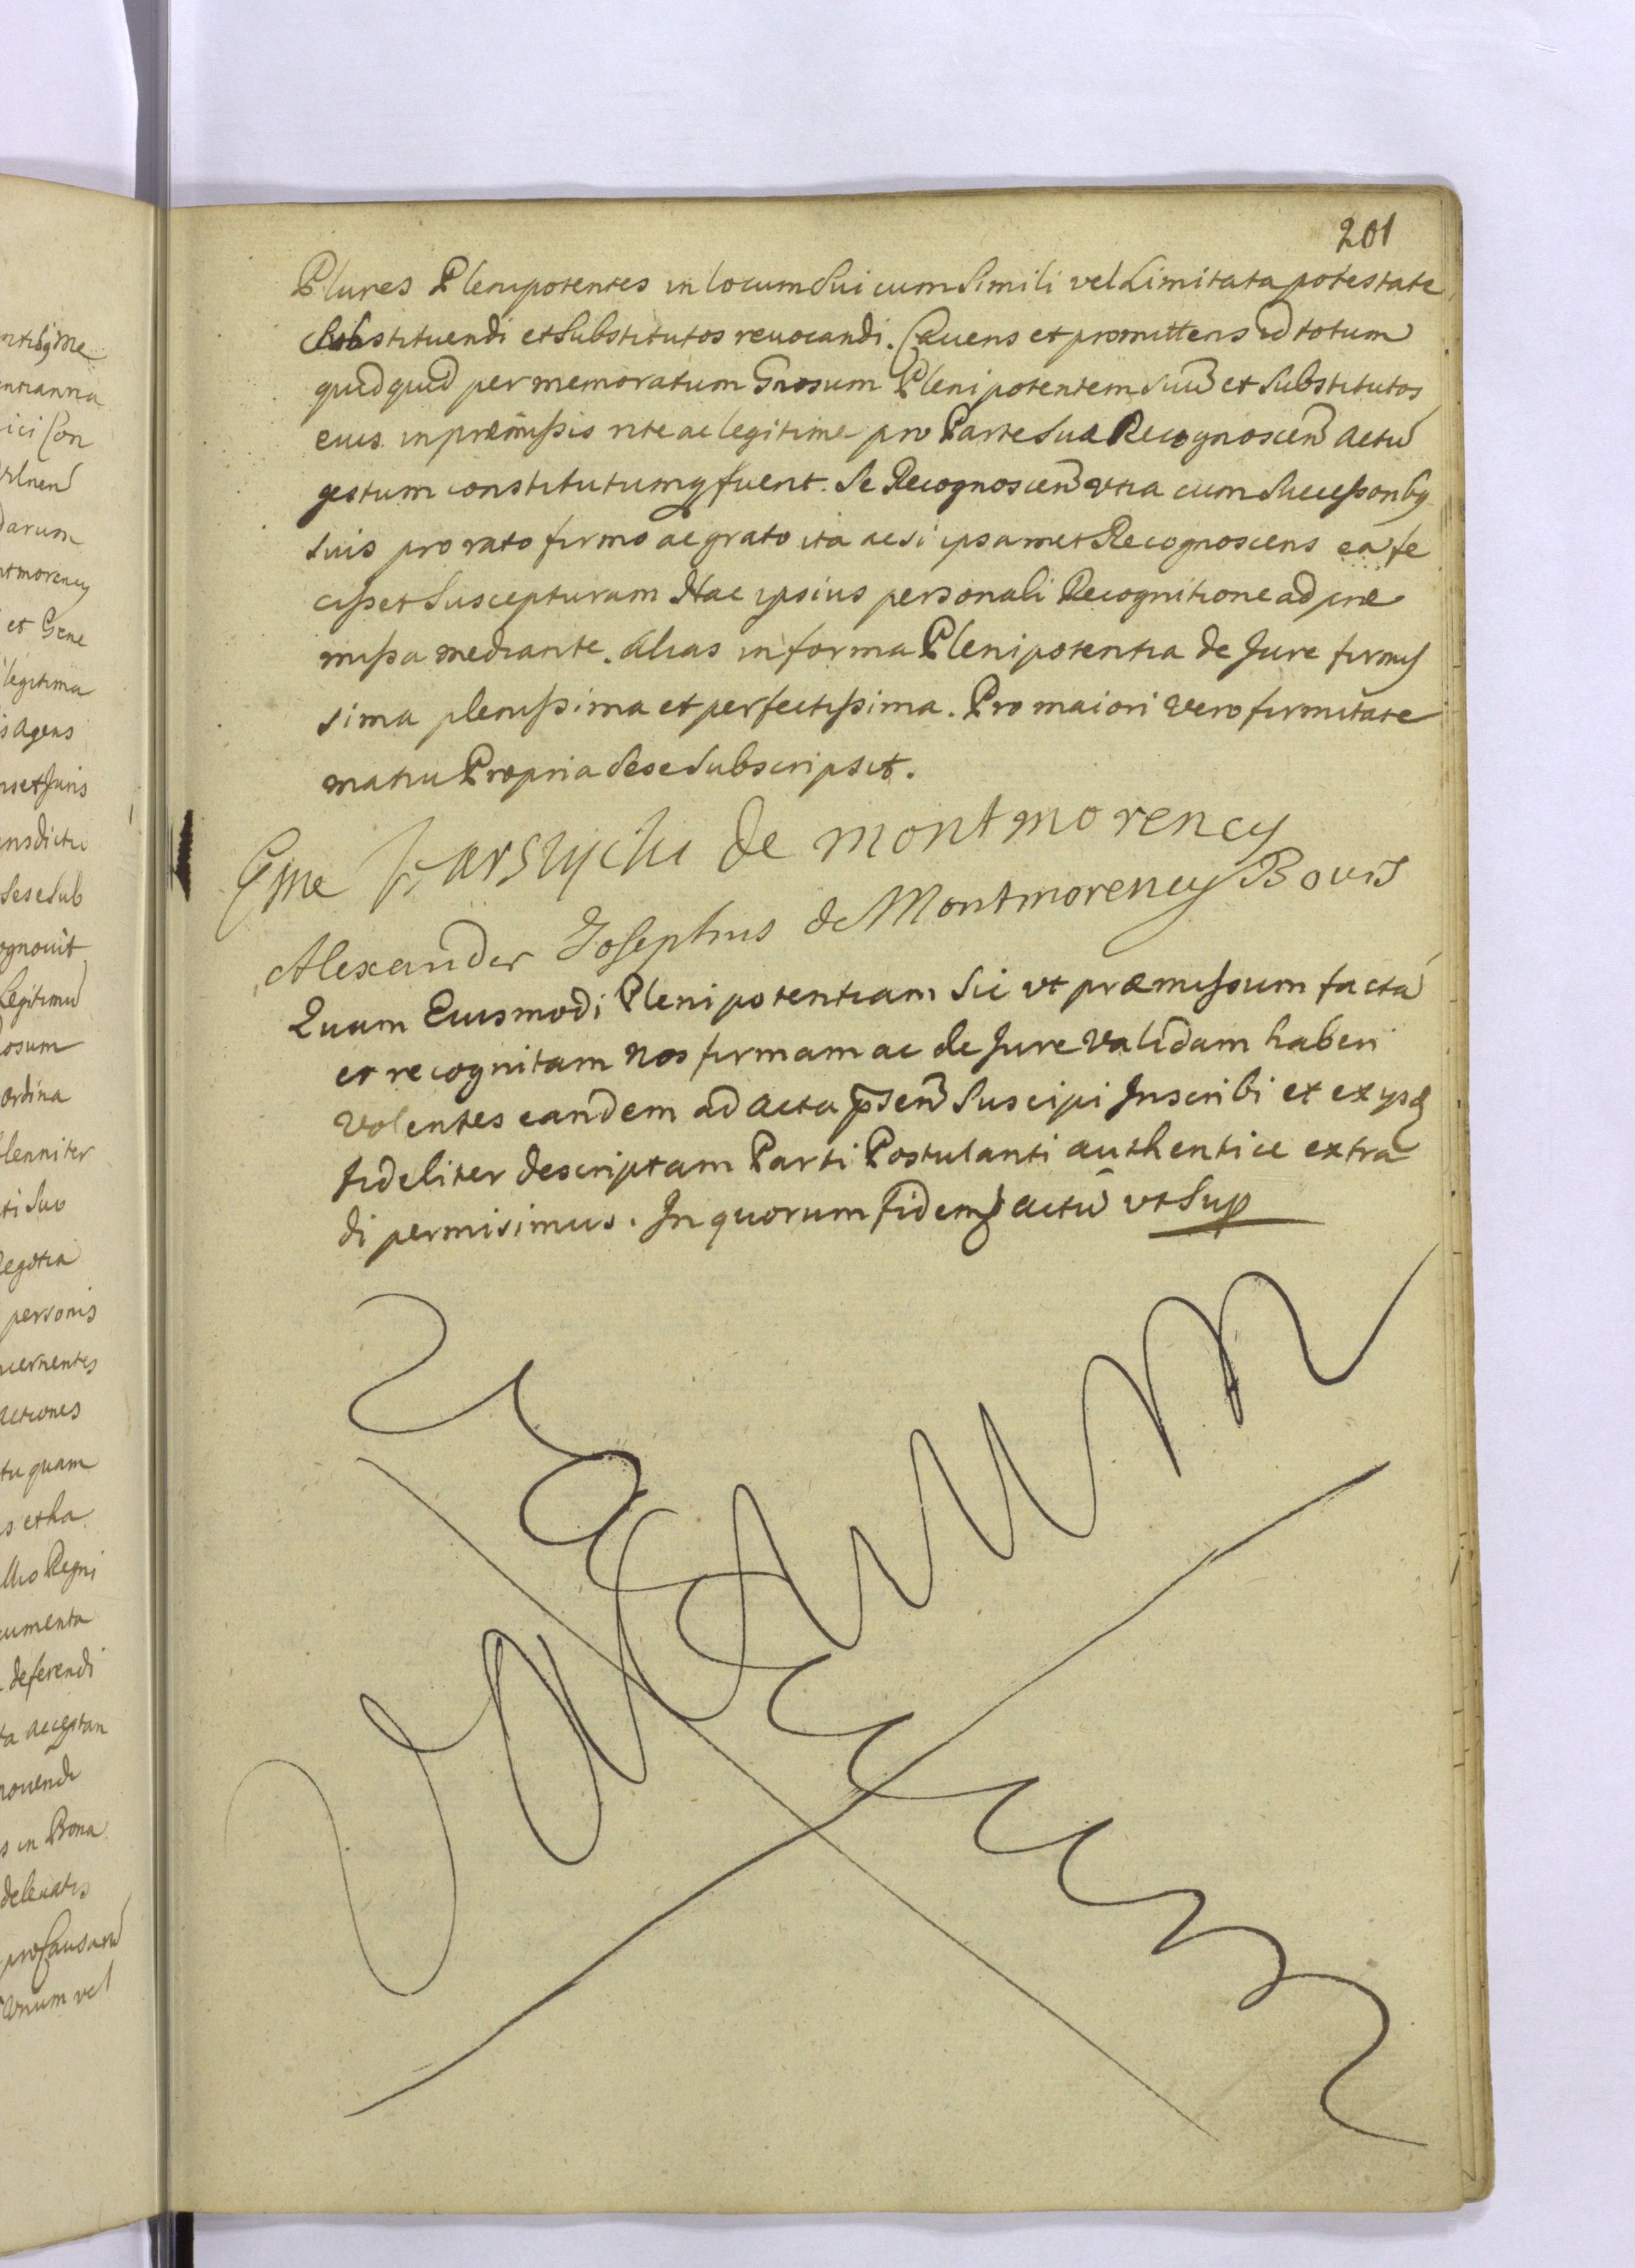 201
Plures Plenipotentes in locum Sui cum Simili vel Limitata potestate
Substituendi et Substitutos reuocandi. Cauens et promittens id totum
quidquid per memoratum Gnosum Plenipotentem Suū et Substitutos
eius in præmissis rite ac legitime pro Parte Sua Recognoscen̄ actū
gestum constitutumq̨ fuerit. Se Recognoscen̄ vna cum Successoribq̨
Suis pro rato firmo ac grato ita ac si ipsamet Recognoscens ea fe
cisset Suscepturam Hac ipsius personali Recognitione ad præ
missa mediante. Alias in forma Plenipotentia de Jure firmis
sima plenissima et perfectissima. Pro maiori vero firmitate
manu Propria Sese Subscripsit.
de montmorency
Alexander Josephus de Montmorency Bours
Quam Eiusmodi Plenipotentiam Sic vt præmissum factā
et recognitam Nos firmam ac de Jure Validam haberi
Volentes eandem ad Acta p̄sen̄ Suscipi Inscribi et ex ysdē
fideliter descriptam Parti Postulanti authentice extra
di permisimus. In quorum fidem actū vt Sup
Vacuum
ntibq̨ me
ici Con
darum
ntmorency
et Gene
legitima
s agens
ns et Juris
Sese Sub
ognouit
Legitimū
osum
ordina
lenniter
ti Suo
Negotia
personis
ncernentes
actiones
tu quam
s et ha
llis Regni
cumenta
deferendi
ta acceptan
mouendi
s in Bona
deleuatis
pro Causarū
Vnum vel